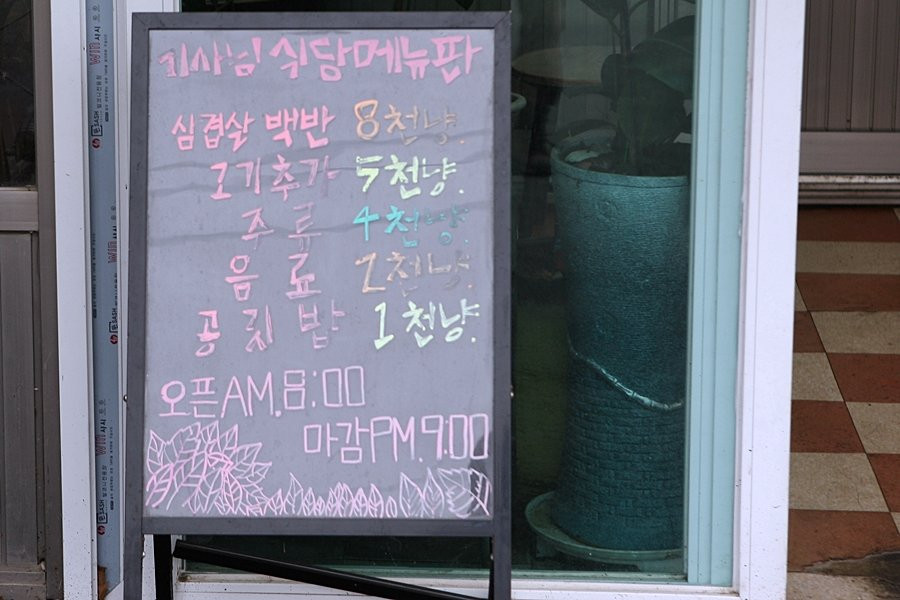 기사님! 식당메뉴판
심겹살 백반 8천냥.
고기추가 5천냥.
주류 4천냥.
음료 2천냥.
공기밥 1천냥.
오픈AM.8:00
마감PM.9:00